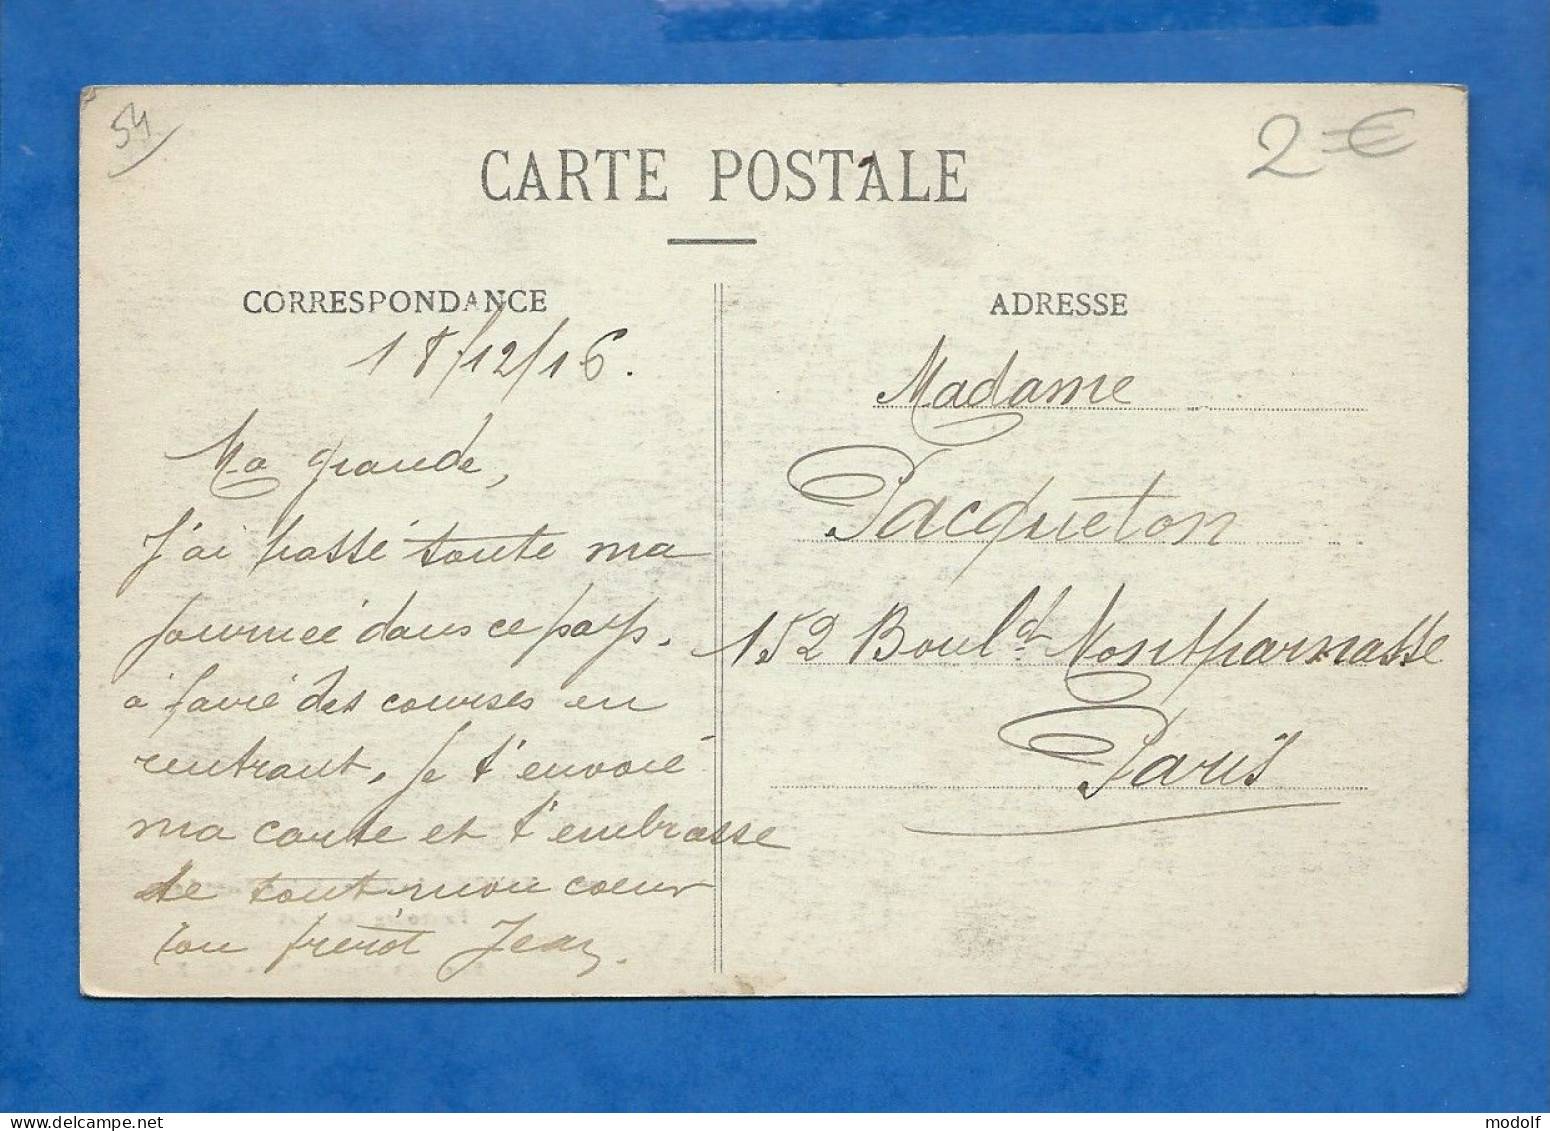 54
2=€
CARTE POSTALE
CORRESPONDANCE
18/12/16.
Ma grande,
J'ai passé toute ma
journée dans ce pays.
à faire des courses en
rentrant, je t'envoie
ma carte et t'embrasse
de tout mon coeur
ton frérot Jean.
ADRESSE
Madame
Pacqueton
152 Boul.d Montparnasse
Paris
modolf